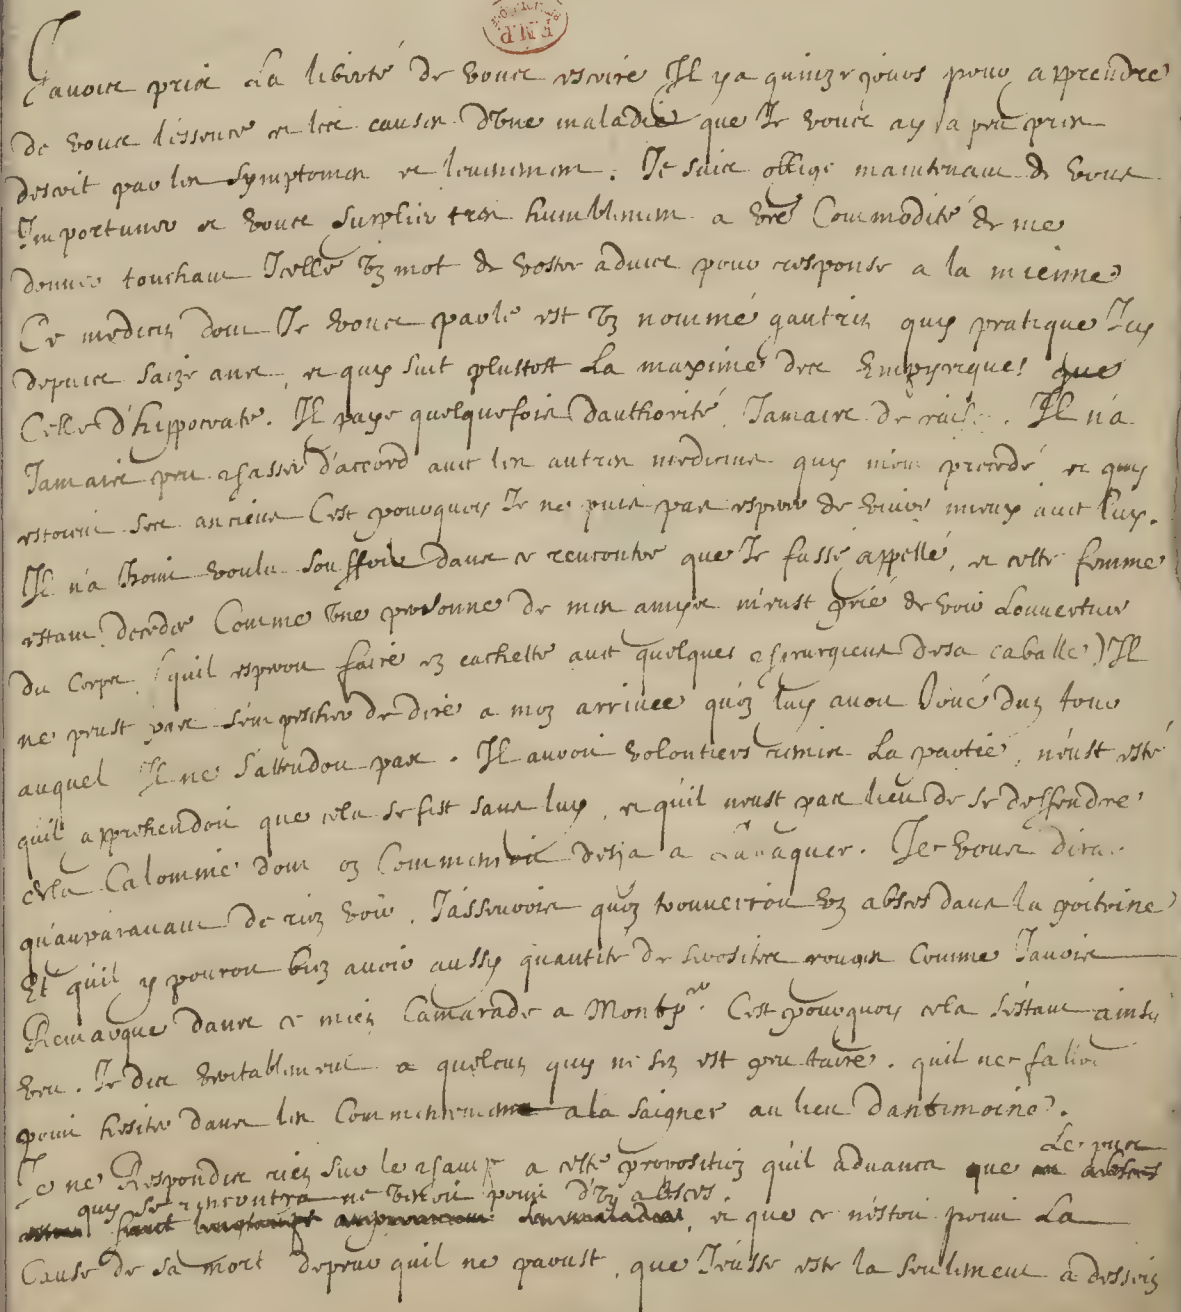 J'avois pris La liberté de vous escrire Il y a quinze jours pour apprendre
de vous l'essence et les causes d'une maladie que Je vous ay a peu pres
descrit par les symptomes et l'euenement. Je suis obligé maintenant de vous
Importuner et vous supplier tres humblement a vre Commodité de me
donner touchant Icelle un mot de vostre aduis pour response a la mienne
Ce medecin dont Je vous parle est un nommé gautrin quy pratique Icy
depuis saize ans, et quy suit plustost La maxime des Empyriques que
Celle d'hyppocrate. Il paye quelquefois d'authorité, Jamais de rais. Il n'a
Jamais peu chasser d'accord auec les autres medecins quy m'ont precedé et quy
estoient ses anciens C'est pourquoy Je ne puis pas esperer de viure mieux auec luy.
Il n'a point voulu souffrir dans ce rencontre que Je fusse appellé, et cette femme
estant decedée Comme une personne de mes amys m'eust prié de voir L'ouuerture
du Corps, (quil esperoit faire en cachette auec quelques chirurgiens de sa caballe) Il
ne peust pas s'empescher de dire a mon arriuée qu'on luy auoit Joué d'un tour
auquel Il ne s'attendoit pas. Il auroit volontiers remis La partie, n'eust esté
quil apprehendoit que cela se fist sans luy, et quil n'eust pas lieu de se deffendre
de la Calomnie dont on Commençoit desja a l'attaquer. Je vous diray
qu'auparauant de rien voir, J'asseurois qu'on trouueroit un absces dans la poitrine
Et quil y pouroit bien auoir aussy quantité de serosites rousses Comme J'auois
Remarqué dans ce mien Camarade a Montpr. C'est pourquoy cela s'estant ainsy
veu. Je dis veritablement a quelcun quy ne s'en est peu taire. quil ne falloit
point hesiter dans les Commencemens a la saigner au lieu d'antimoine.
Le pus
Je ne Respondis rien sur le champ a cette proposition qu'il aduança que un absces
quy se rencontra ne venoit point d'un absces.
et que ce n'estoit point La
Cause de sa mort depeur quil ne parust, que J'eusse esté la seulement a dessein